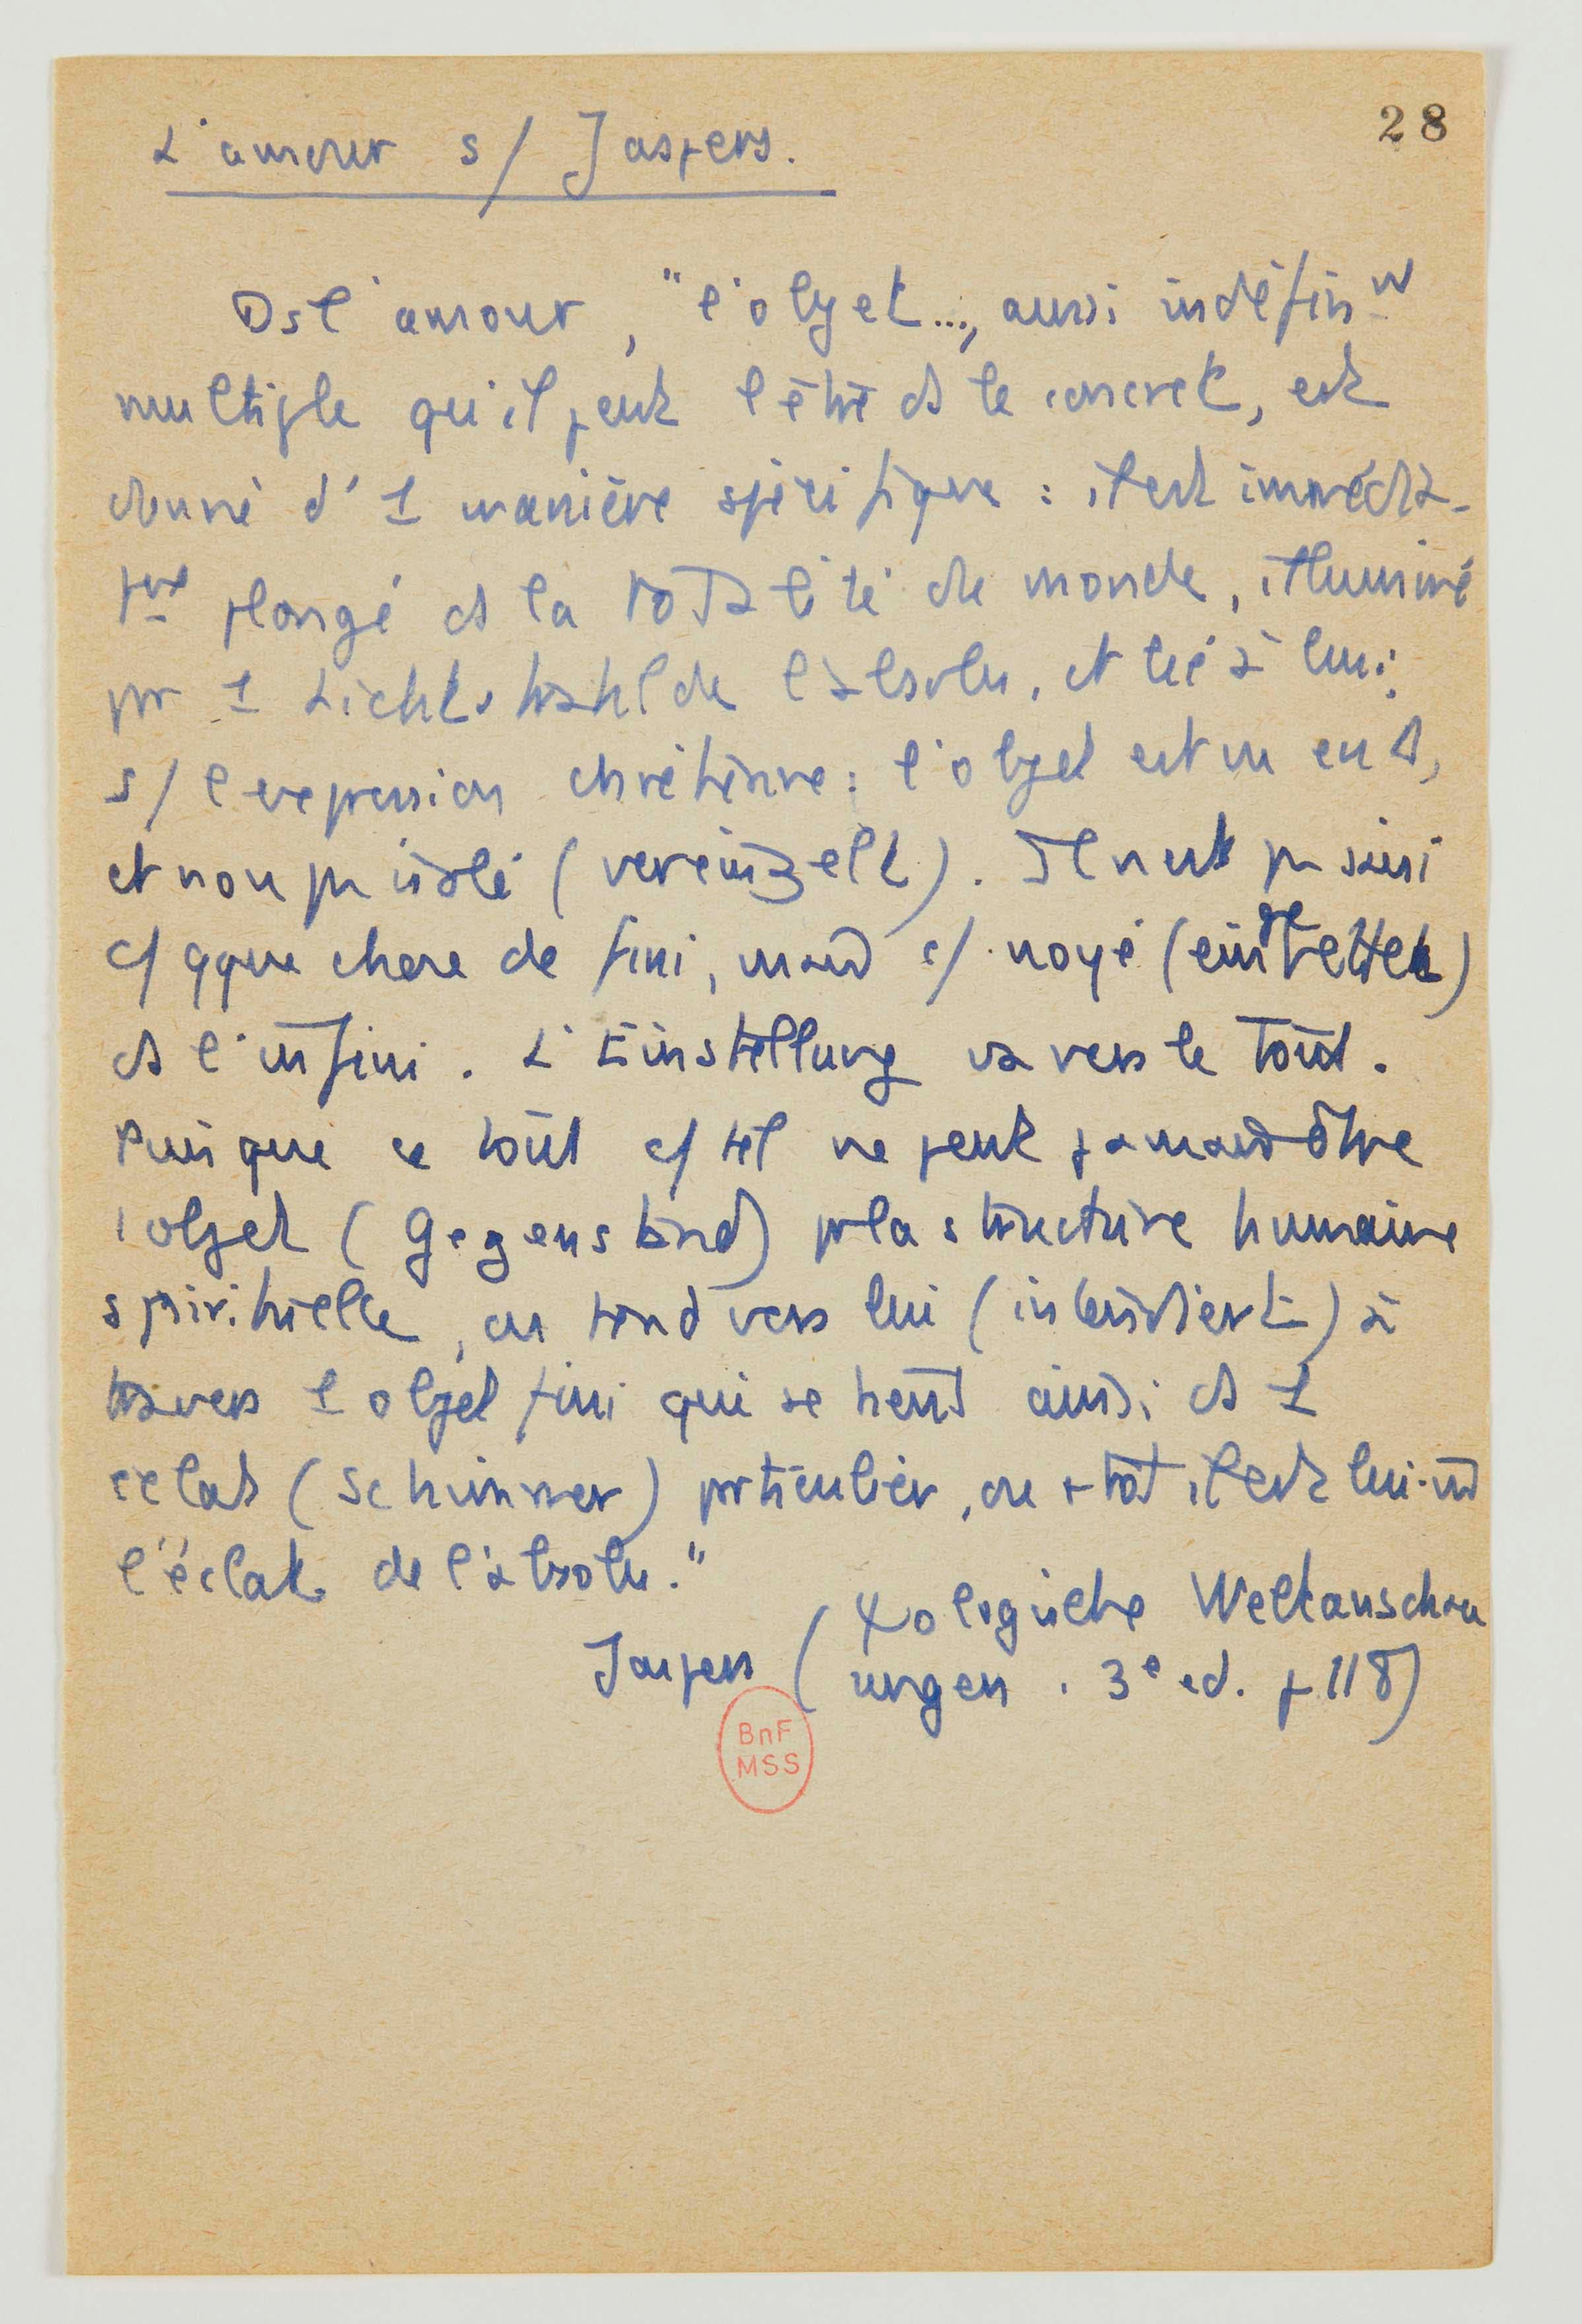 28
L'amour s/ Jaspers.
Ds l'amour, "l'objet..., aussi indéfin^t
multiple qu'il peut l'être ds le concret, est
donné d'1 manière spécifique : il est immédia-
t^mt plongé ds la totalité du monde, illuminé
pr 1 Lichtstrahl de l'absolu, et lié à lui;
s/ l'expression chrétienne : l'objet est vu en D,
et non pas isolé (vereinzelt). Il n'est pas saisi
c/ qque chose de fini, mais c/ noyé (eingebettet)
ds l'infini. L'Einstellung va vers le tout.
Puisque ce tout c/ tel ne peut jamais être
1 objet (Gegenstand) pr la structure humaine
spirituelle, on tend vers lui (intendiert) à
travers 1 objet fini qui se tient ainsi ds 1
éclat (Schimmer) particulier, ou + tôt il est lui-m̂
l'éclat de l'absolu."
Jaspers (ψologische Weltanschau
ungen. 3e ed. p 118)
BnF
MSS